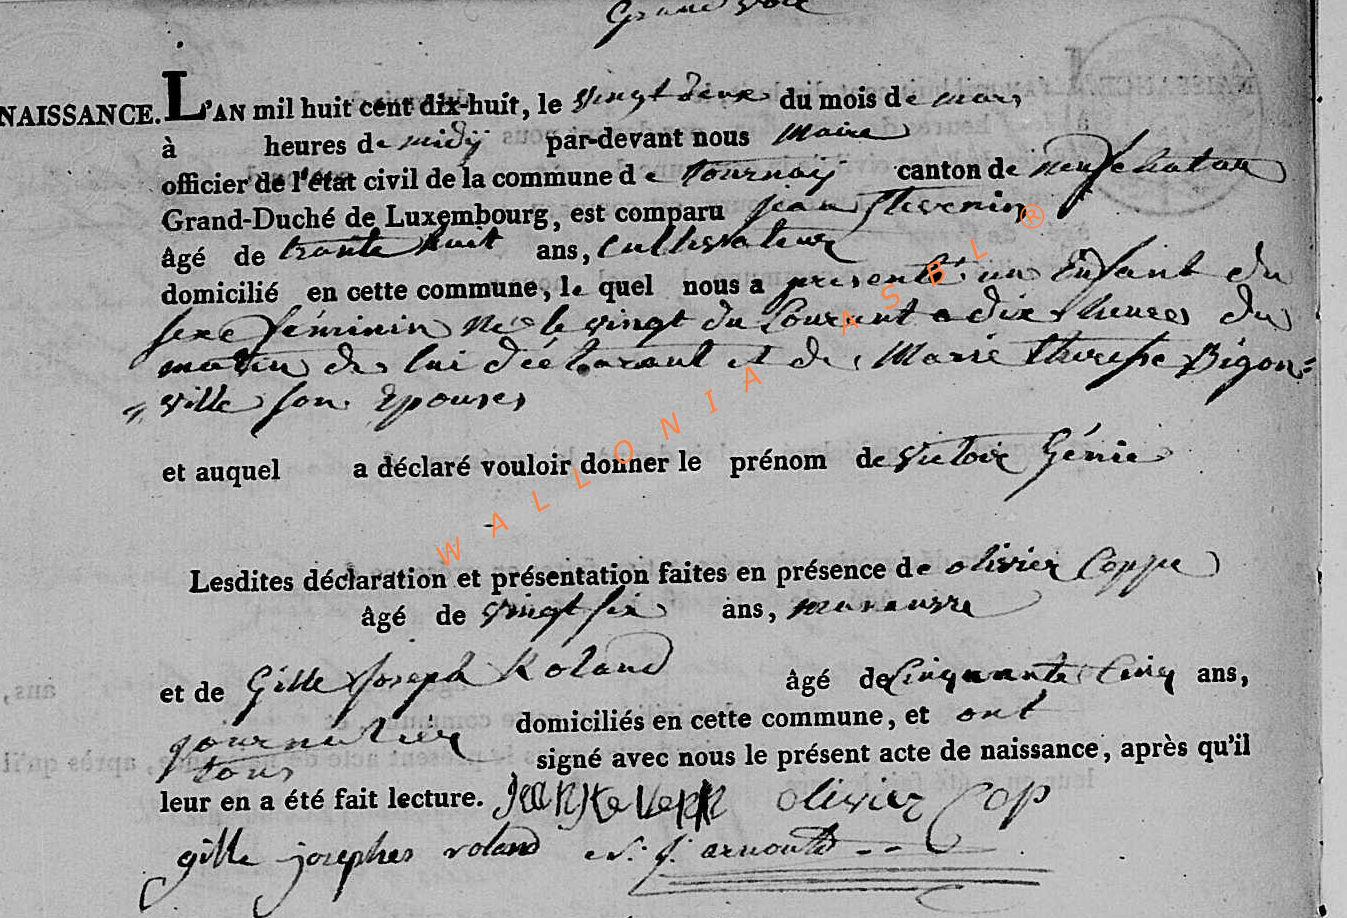 Grandvoir
NAISSANCE. L'AN mil huit cent dix-huit, le vingt deux du mois de mars
à heures de midÿ par-devant nous Maire
officier de l'état civil de la commune de tournaÿ canton de neufchatau
Grand-Duché de Luxembourg, est comparu jean Thevenin
âgé de trante huit ans, Cultivateur
domicilié en cette commune, le quel nous a presenté un Enfant du
sexe féminin né le vingt du Courant a dix heures du
matin de lui déclarant et de Marie therese Bigon=
=ville son Epouse
et auquel a déclaré vouloir donner le prénom de victoire Génie
Lesdites déclaration et présentation faites en présence de olivier Coppe
âgé de vingt six ans, maneuvre
et de Gille joseph Roland âgé de Cinquante Cinq ans,
journalier domiciliés en cette commune, et ont
tous signé avec nous le présent acte de naissance, après qu'il
leur en a été fait lecture. olivier Cop
gille josephes roland N. j. arnould
WALLONIA ASBL ®